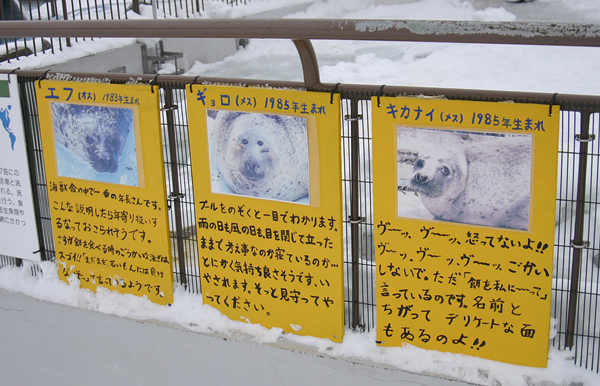 エフ(オス) 1983年生まれ
海獣舎の中で一番の年長さんです。
こんな説明したら年寄り扱いす
るなっておこられそうです。
さすが餌を食べる時のごうかいな姿は
スゴイ!!「まだまだ若いもんには負け
ギョロ(メス) 1985年生まれ
プールをのぞくと一目でわかります。
雨の日も風の日も、目を閉じて立った
ままで考え事なのか寝ているのか…
とにかく気持ち良さそうです。い
やされます。そっと見守ってや
ってください。
キカナイ(メス) 1985年生まれ
ヴーッ、ヴーッ、怒ってないよ!!
ヴーッ、ヴーッ、ヴーッ、ごかい
しないで。ただ「餌を私に~~って」
言っているのです。名前と
ちがって デリケートな面
もあるのよ!!